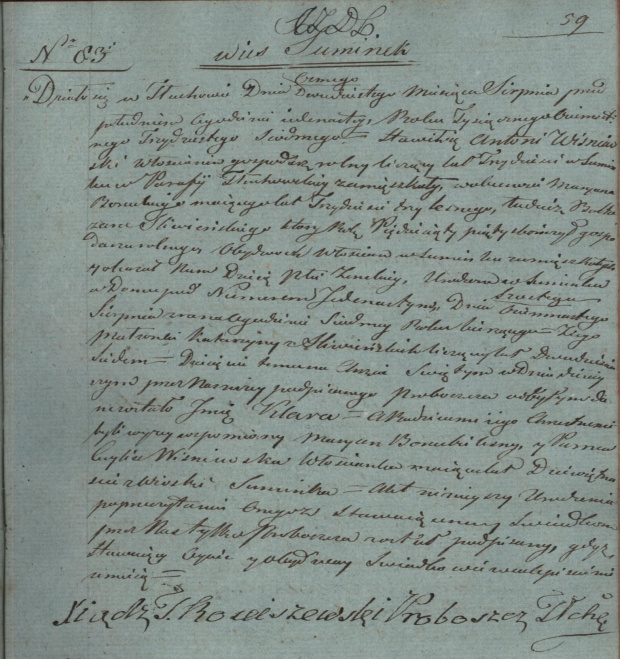 59
Nro 83
wieś Suminek
Działo się w Tłuchowie Dnia Dwudziestego Ósmego Miesiąca Sierpnia przed
południem o godzinie iedenastey, Roku Tysiącznego Ośmset-
nego Trzydziestego Siodmego = Stawił się Antoni Wiśniew-
ski Włościanin gospodarz rolny liczący lat Trzydzieści w Sumin-
ku w Parafij Tłuchowskiey zamięszkały, w obecności Maryana
maiącego lat Trzydzieści trzy tudzież
Sliwińskiego który Rok Pięćdziąty piąty skończył gospo-
darza rolnego, Obydwoch Włościan w Suminku zamięszkałych
y okazał Nam Dziecię Płci Żeńskiey, Urodzone w Suminku
w Domu pod Numerem Jedenastym, Dnia Dwudziestego Szóstego
Sierpnia zrana o godzinie Siodmy Roku bieżącego = z iego
małżonki Katarzyny z Śliwińskich liczący lat Dwadzieścia
Siedem = Dziecięciu temu na Chrzcie Swiętym w Dniu dzisiey-
szym przez Naszego podpisanego Proboszcza odbytym da-
ne zostało Imię Klara = a Rodzicami iego Chrzestnemi
byli wyżey wspomniony Maryan y Panna
Wiśniewska Włościanka maiąca lat Dziewiętna-
ście z Wioski Suminka = Akt ninieyszy Urodzenia
po przeczytaniu onegoż Stawaiącemu y Świadkom
przez Nas tylko Proboszcza został podpisany, gdyż
Stawaiący Oyciec y obydway Swiadkowie pisać nie
umieią =
Xiądz J. Kowiszewski Proboszcz Tłcho